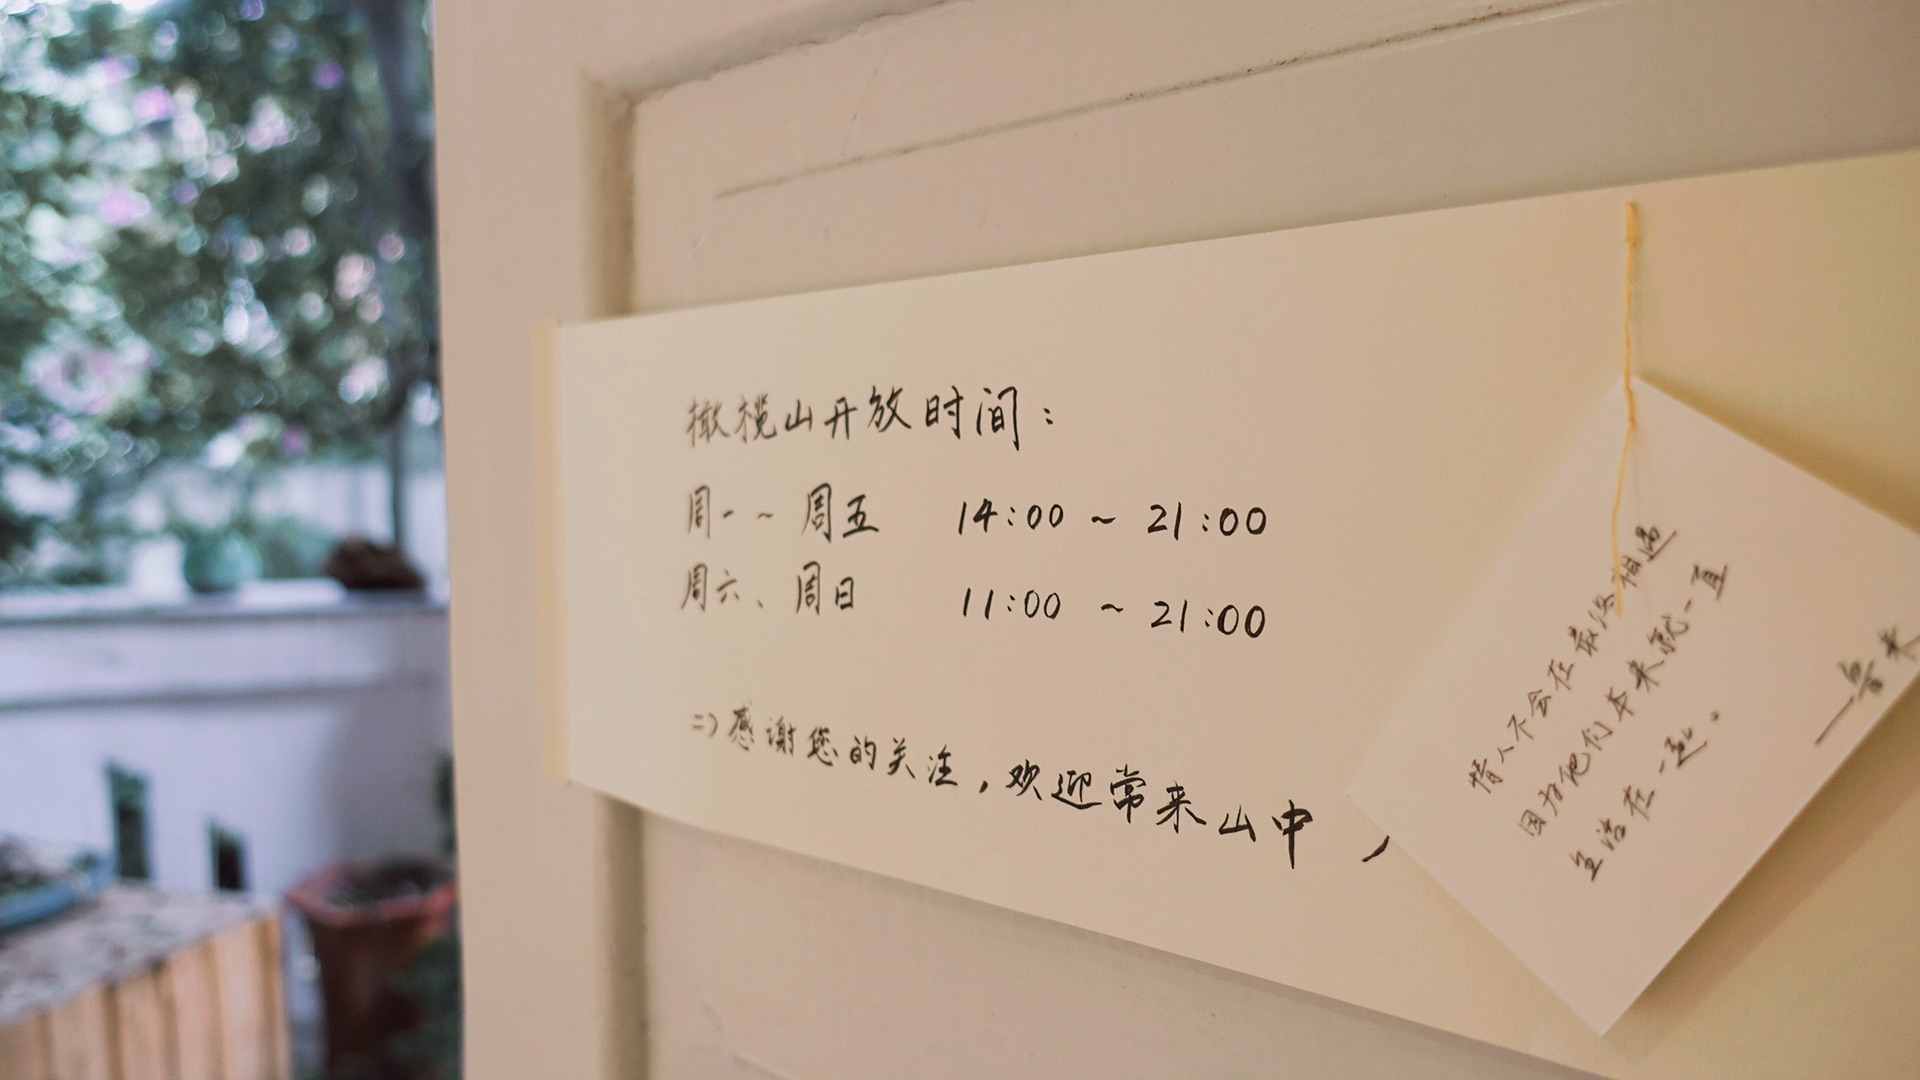 橄榄山开放时间：
周一～周五 14:00～21:00
周六、周日 11:00～21:00
=》感谢您的关注，欢迎常来山中，
情人不会在最终相遇
因为他们本来就一直
生活在一起。
——鲁米